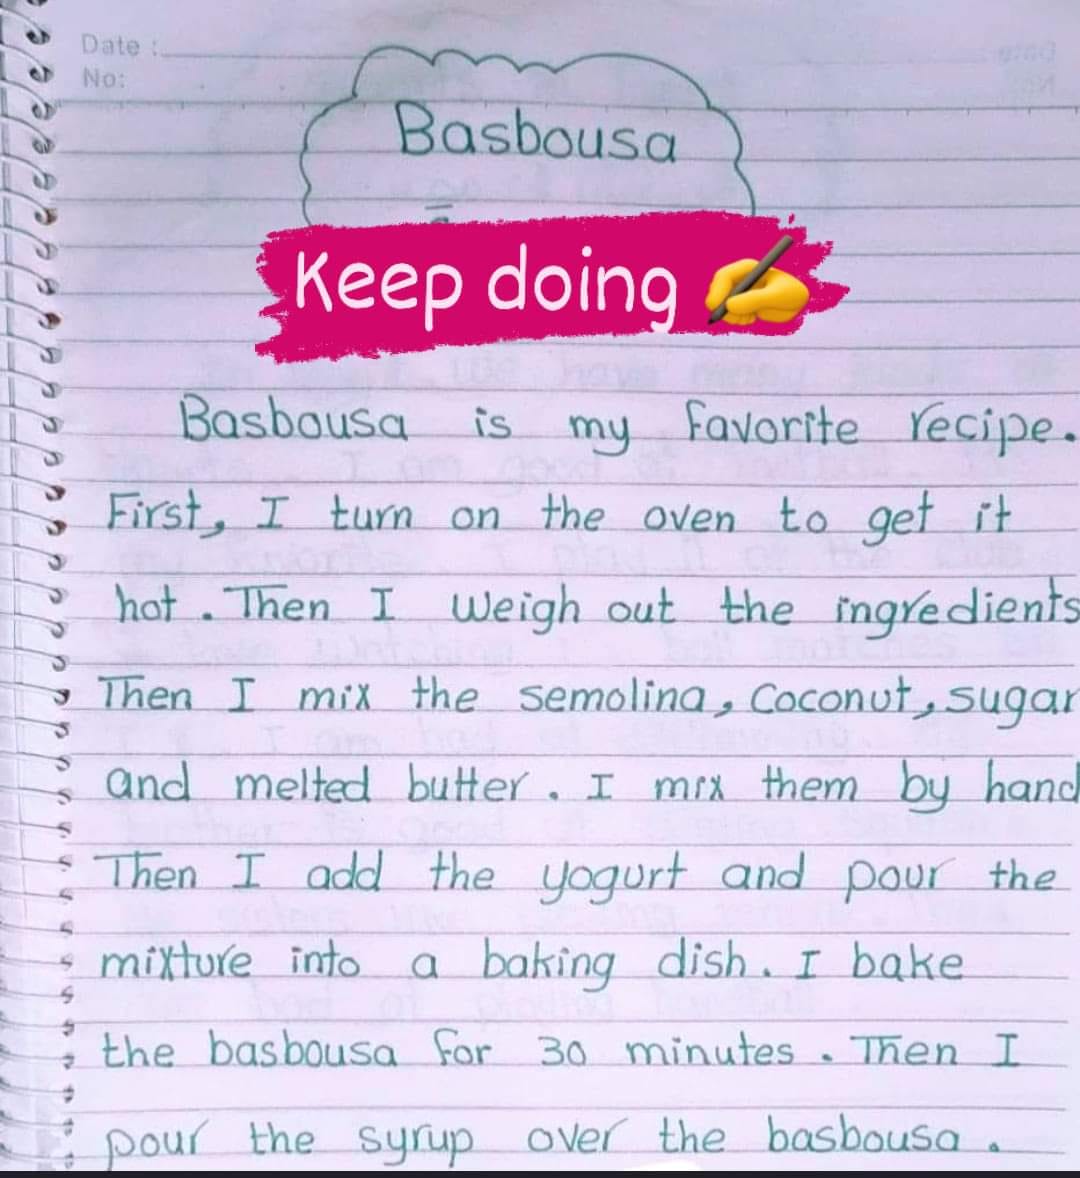 Date :
No:
Basbousa
Keep doing ✍
Basbousa is my favorite recipe.
First, I turn on the oven to get it
hot. Then I weigh out the ingredients
Then I mix the semolina, coconut, sugar
and melted butter. I mix them by hand
Then I add the yogurt and pour the
mixture into a baking dish. I bake
the basbousa for 30 minutes. Then I
pour the syrup over the basbousa.